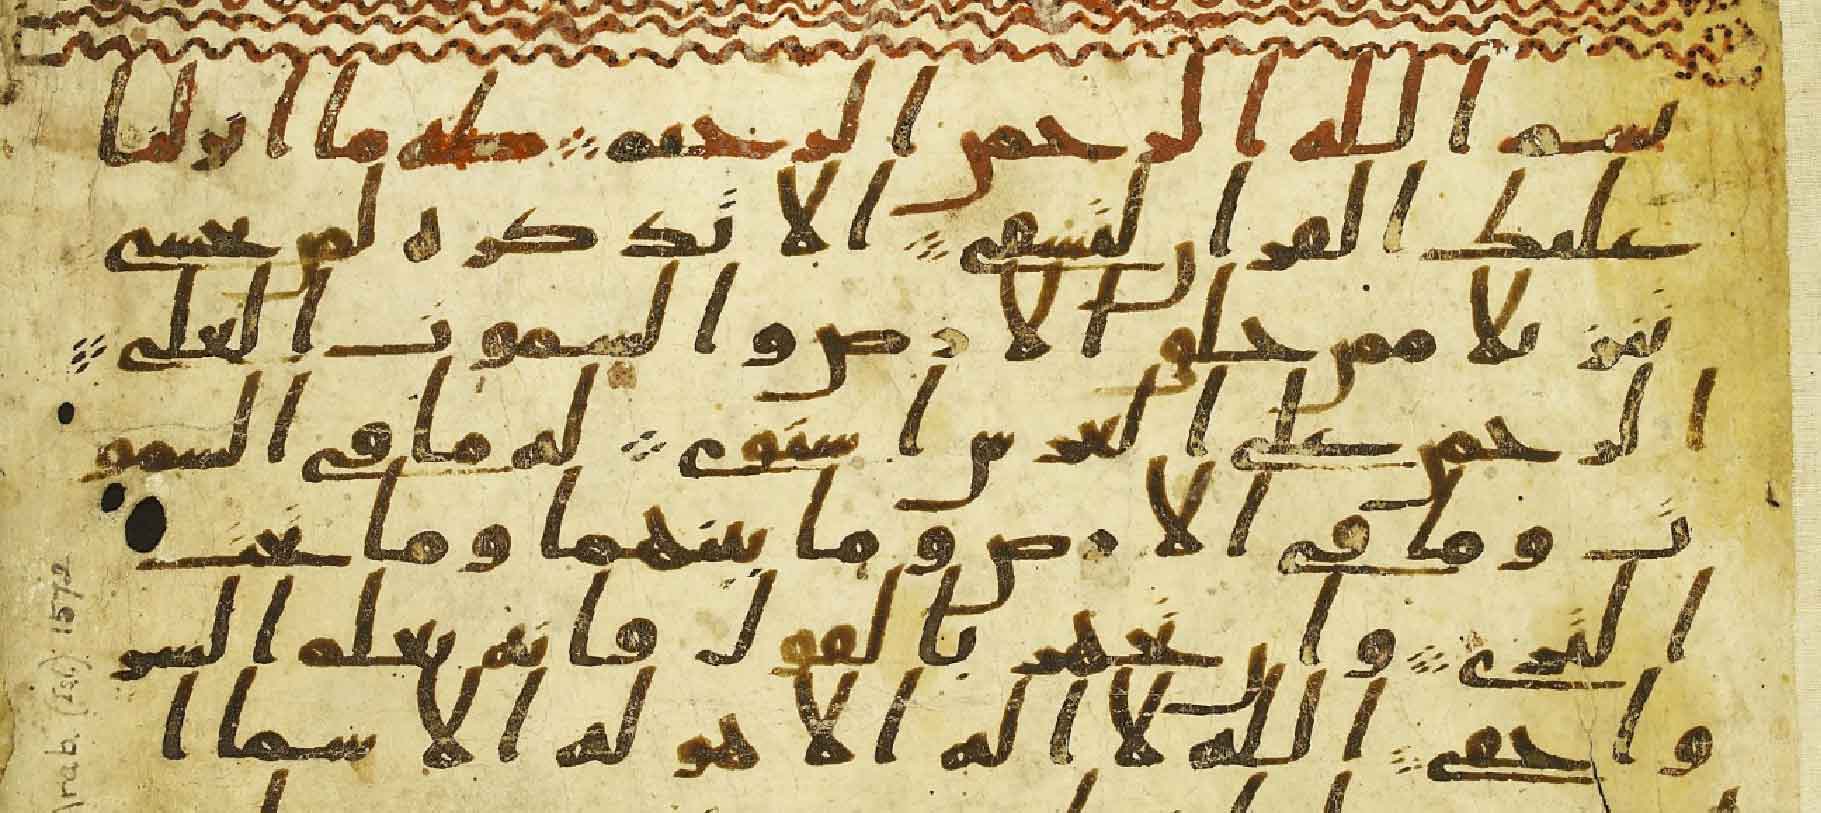 بسم الله الرحمن الرحيم طه ما انزلنا
عليك القران لتشقى الا تذكره لمن يخشى
تنزيلا ممن خلق الارض والسموت العلى
الرحمن على العرش استوى له ما فى السمو
ت وما فى الارض وما بينهما وما تحت
الثرى وان تجهر بالقول فانه يعلم السر
واخفى الله لا اله الا هو له الاسما ا
Arab. (Isl) 1572